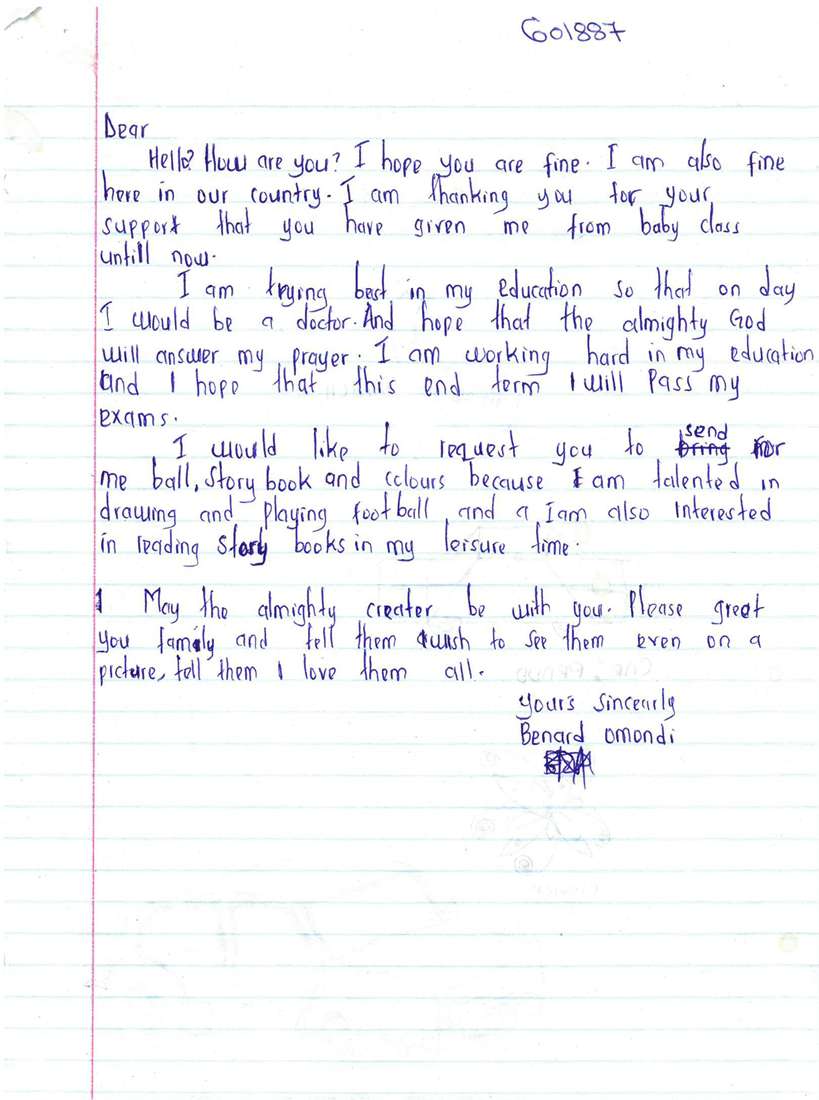 G01887
Dear
Hello? How are you? I hope you are fine. I am also fine
here in our country. I am thanking you for your
support that you have given me from baby class
untill now.
I am trying best in my education so that on day
I would be a doctor. And hope that the almighty God
will answer my prayer. I am working hard in my education
and I hope that this end term I will Pass my
exams.
I would like to request you to bring send for
me ball, story book and colours because I am talented in
drawing and playing football and a I am also interested
in reading Story books in my leisure time.
May the almighty creater be with you. Please greet
you family and tell them I wish to see them even on a
picture, tell them I love them all.
Your's Sincearly
Benard Omondi